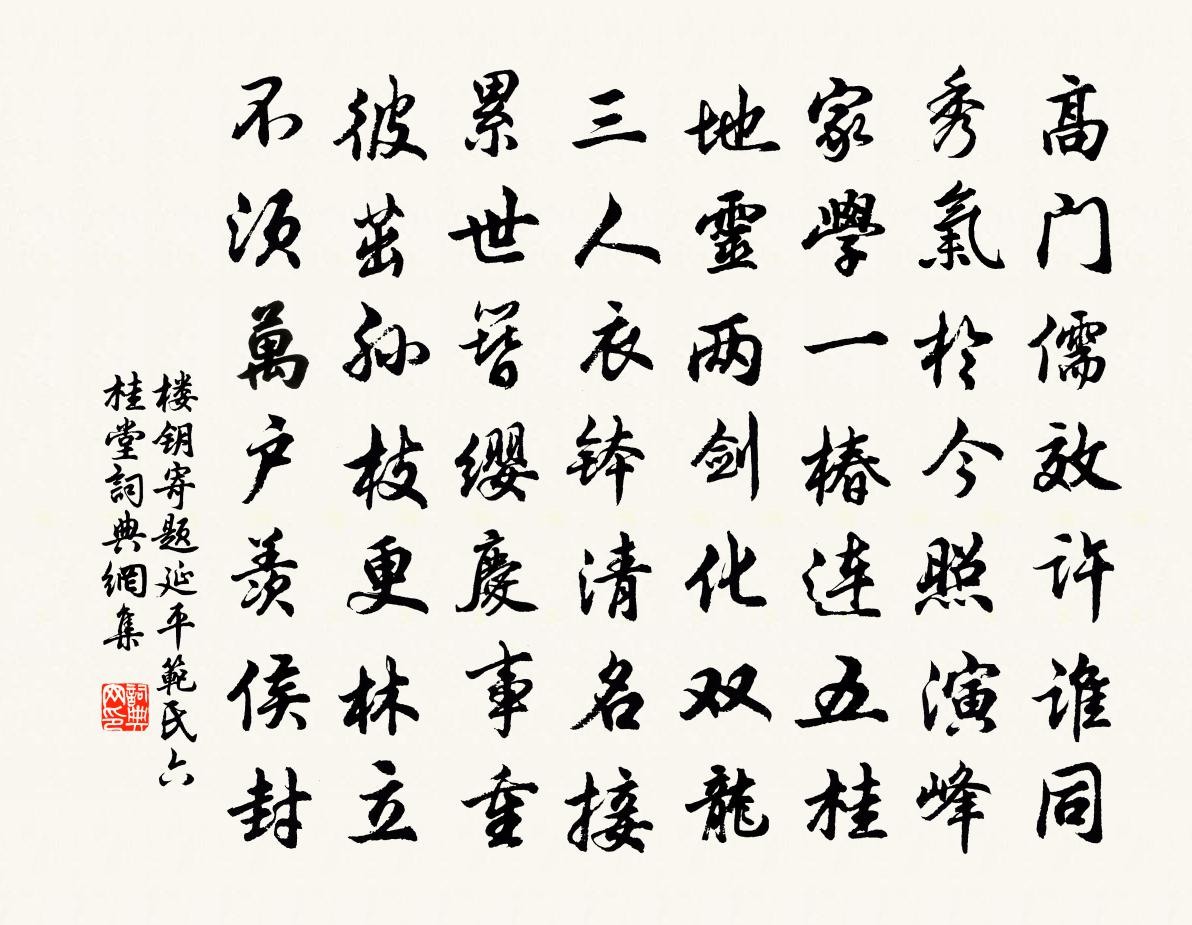 高门儒效许谁同
秀氣於今照演峰
家學一椿连五桂
地靈两剑化双龍
三人衣钵清名接
累世簪缨慶事重
彼茁孙枝更林立
不须萬户羨侯封
楼钥寄题延平範氏六
桂堂詞典網集
詞典网印